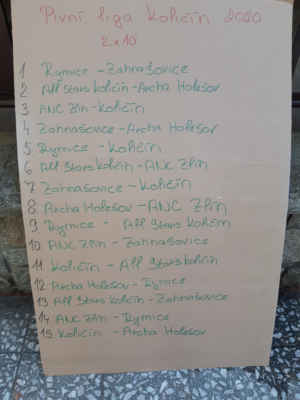 Pivní liga Kohčín 2020
2x10
1 Rymice - Zahnašovice
2 All Stars Kohčín - Archa Holešov
3 ANC Zlín - Kohčín
4 Zahnašovice - Archa Holešov
5 Rymice - Kohčín
6 All Stars Kohčín - ANC Zlín
7 Zahnašovice - Kohčín
8 Archa Holešov - ANC Zlín
9 Rymice - All Stars Kohčín
10 ANC Zlín - Zahnašovice
11 Kohčín - All Stars Kohčín
12 Archa Holešov - Rymice
13 All Stars Kohčín - Zahnašovice
14 ANC Zlín - Rymice
15 Kohčín - Archa Holešov